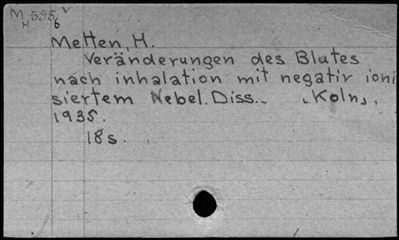 M 595 v
H 6
Metten, H.
Veränderungen des Blutes
nach inhalation mit negativ ioni
siertem Nebel. Diss.. "Koln",
1935.
18s.